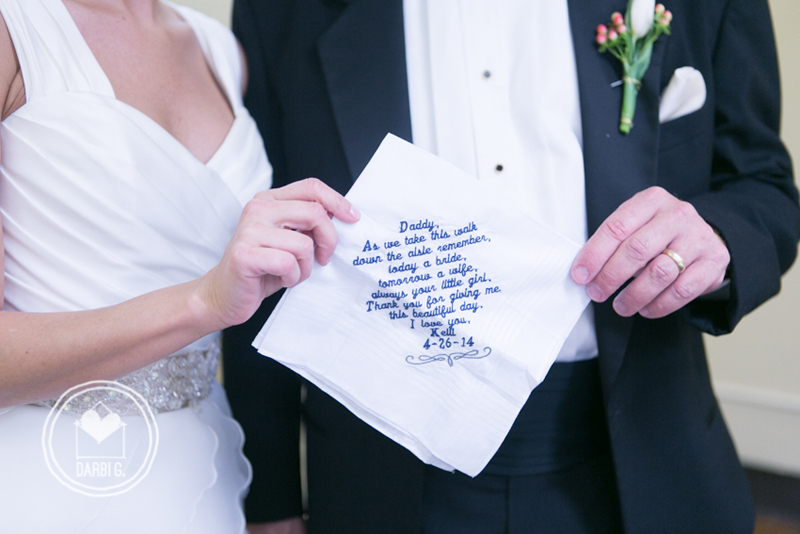 Daddy,
As we take this walk
down the aisle remember,
today a bride,
tomorrow a wife,
always your little girl.
Thank you for giving me
this beautiful day.
I love you,
Kelli
4-26-14
DARBI G.